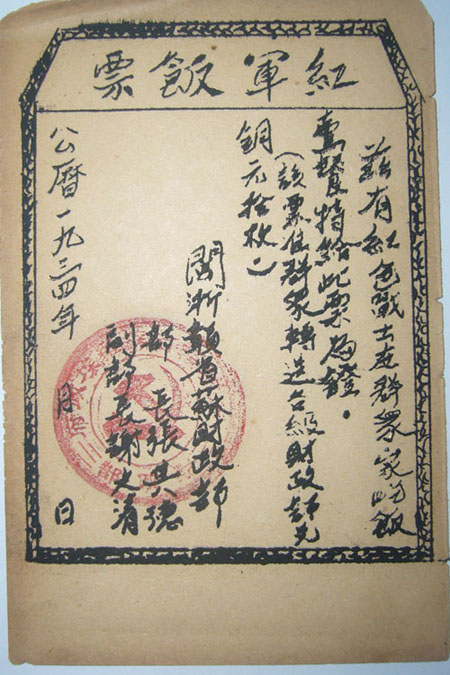 紅軍飯票
茲有紅色戰士在群衆家吃飯
壹餐特給此票為證。
(該票值群衆轉送各級財政部兑
銅元拾枚)
閩浙贛省蘇財政部
部長張其德
副部長謝文清
公曆一九三四年 月 日